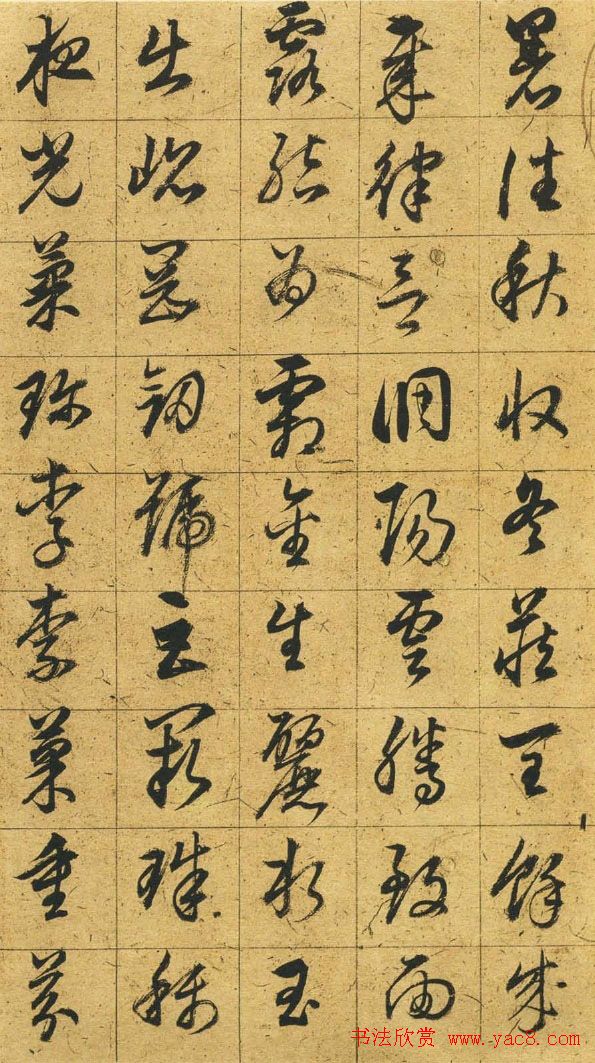 暑往秋收冬藏閏餘成
歲律呂調陽雲騰致雨
露結為霜金生麗水玉
出崐岡劒號巨闕珠稱
夜光菓珍李柰菜重芥
书法欣赏 www.yac8.com